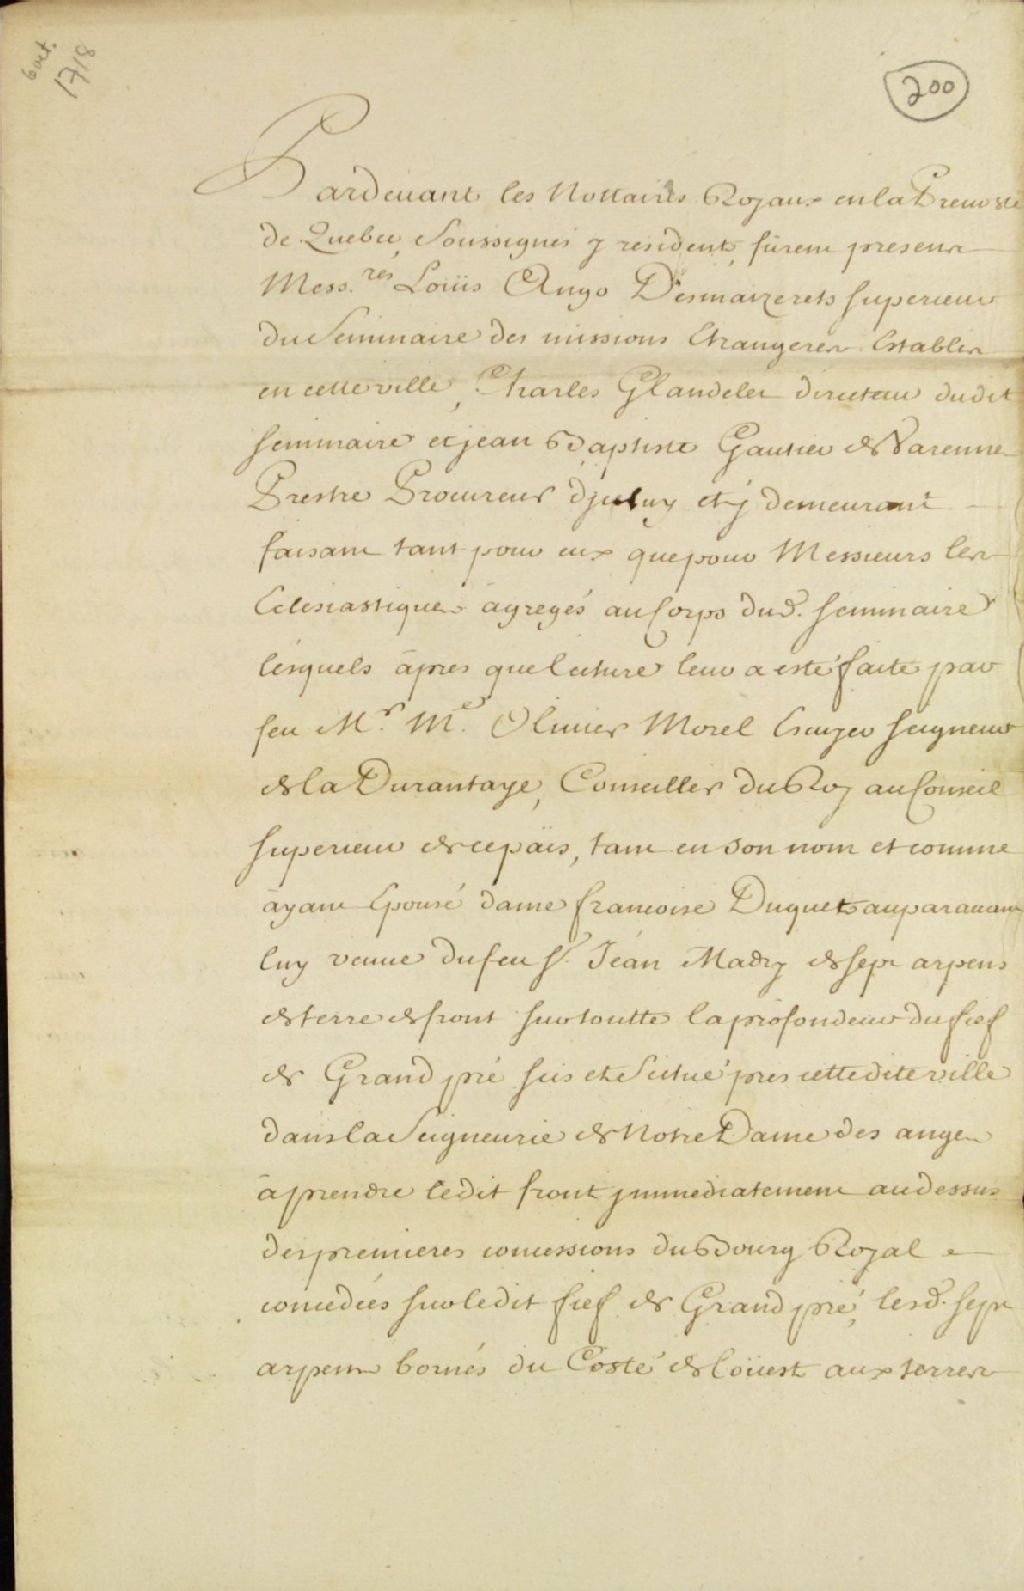 6 oct.
1718
200
Pardevant les Nottaires Royaux en la Prevosté
de Quebec, Soussignés y résident, furent presens
Mess.res Loüis Ango Desmaizerets superieur
du Seminaire des missions Etrangeres Establies
en cette ville, Charles Glandelet directeur dudit
seminaire et jean Baptiste Gautier de Varenne
Prestre Procureur d'jceluy et y demeurant
faisant tant pour eux que pour Messieurs les
Eclesiastiques agregés au Corps dud. seminaire
lesquels âpres que lecture leur a esté faite par
feu Mr. Me. Olivier Morel Escuyer seigneur
de la Durantaye, Conseiller du Roy au Conseil
superieur de ce païs, tant en son nom et comme
âyant Epousé dame francoise Duquet auparavant
luy veuve du feu Sr. Jean Madry de sept arpens
de terre de front sur toutte la profondeur du fief
de Grand pré sis et Scitué pres cette dite ville
dans la Seigneurie de Notre Dame des anges
â prendre ledit front jmmediatement au dessus
des premieres concessions du Bourg Royal
concedées sur ledit fief de Grand pré, lesd. sept
arpens bornés du Costé de loüest aux terres